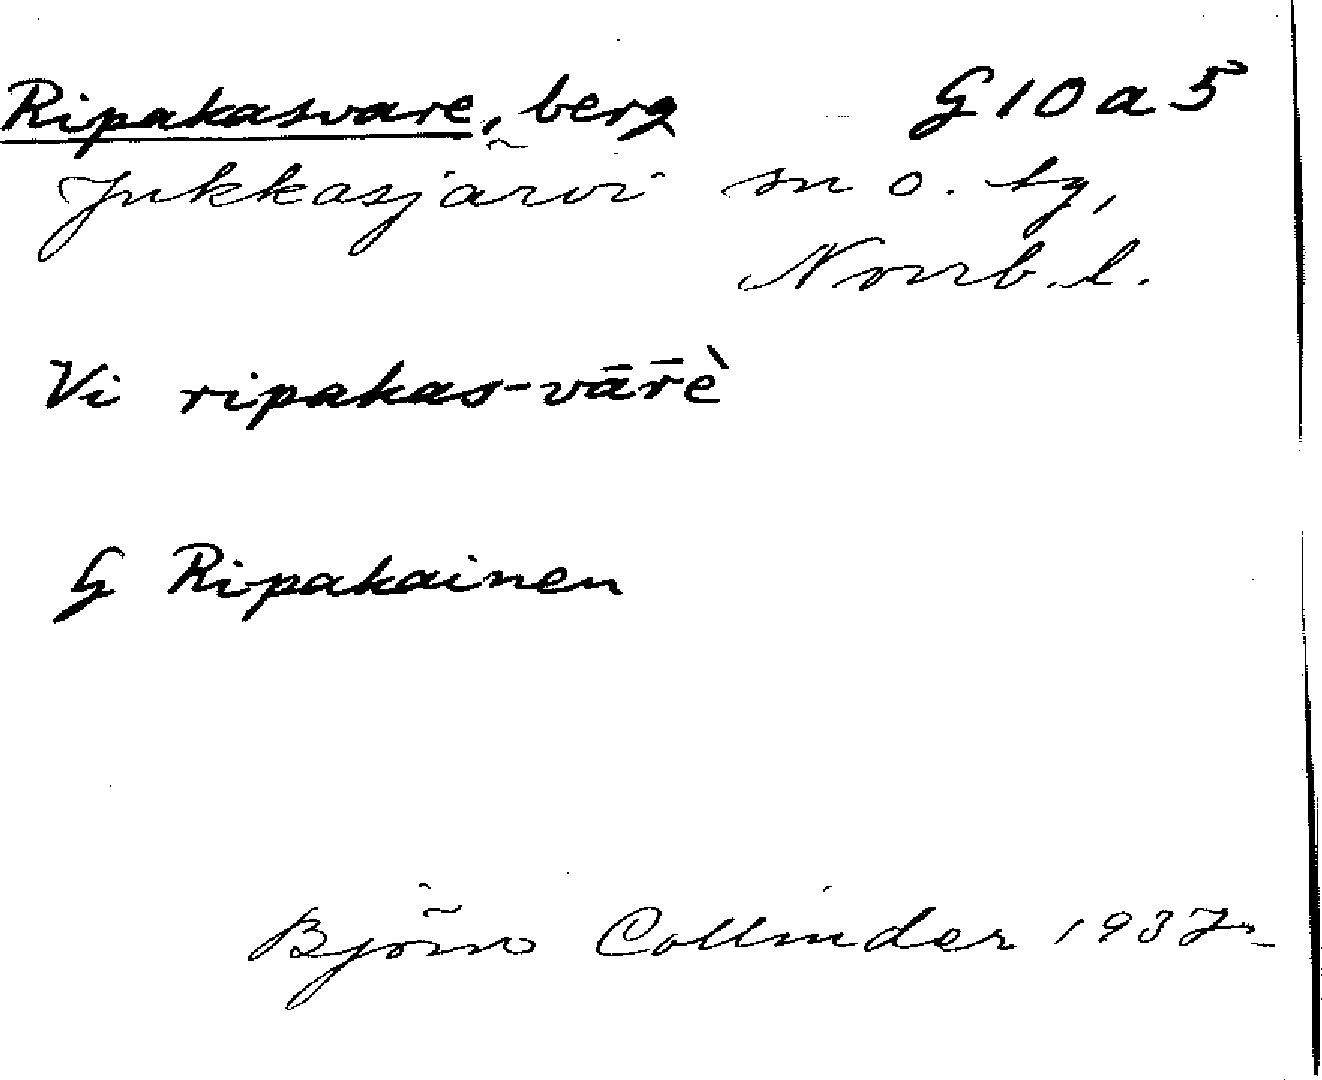 Ripakasvare, berg G 10 a 5
Jukkasjärvi sn o. tg,
Norrb. l.
Vi ripakas-vār̄è
G Ripakainen
Björn Collinder 1937